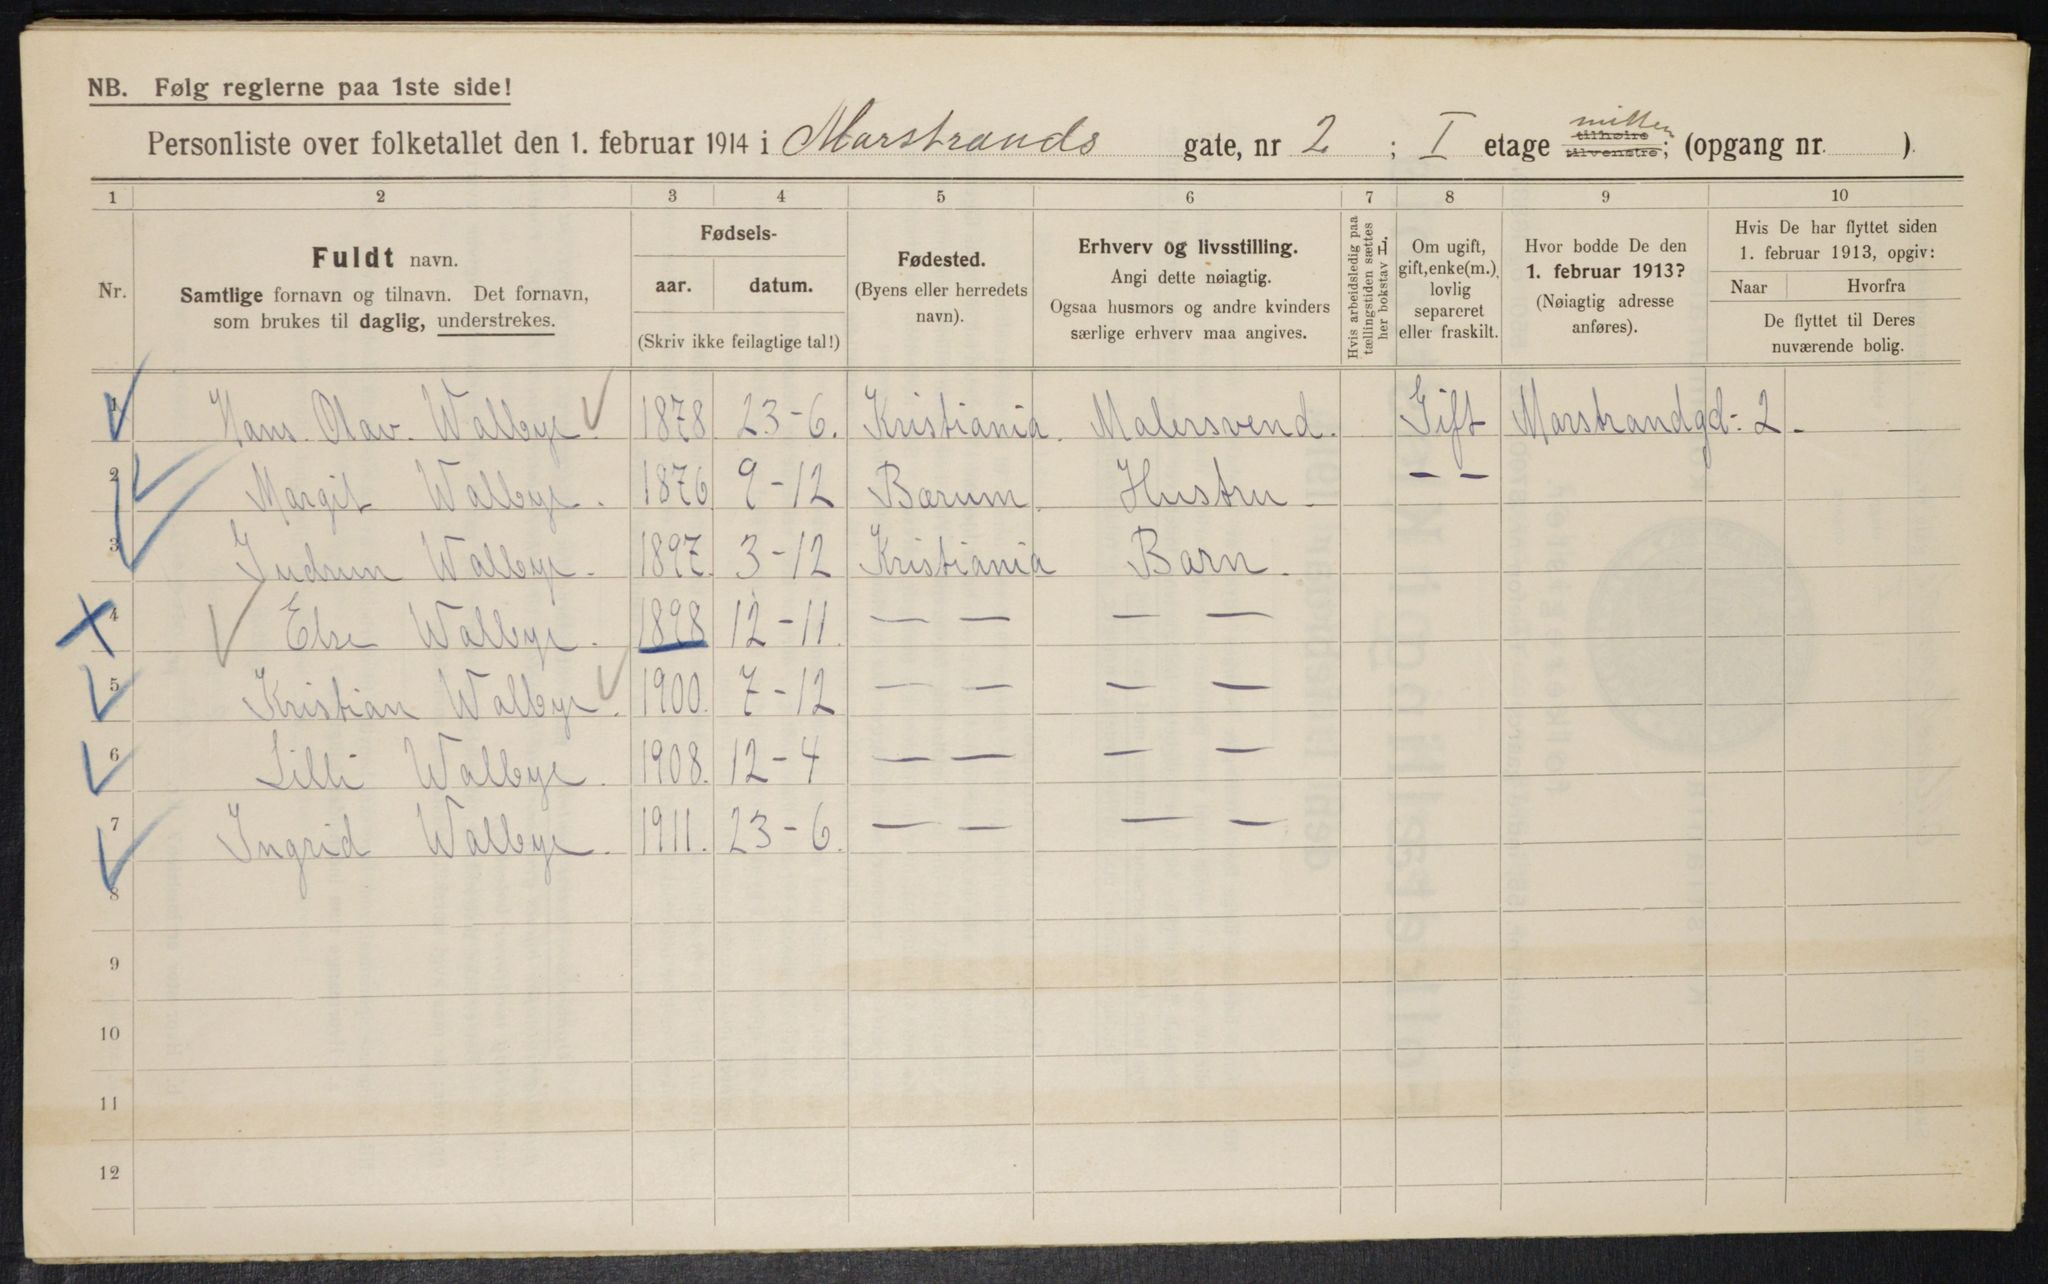 NB. Følg reglerne paa 1ste side!
Personliste over folketallet den 1. februar 1914 i Marstrands gate, nr 2 ; I etage tilhøire tilvenstre; mitten (opgang nr. ).
1 2 3 4 5 6 7 8 9 10
Nr.
Fuldt navn.
Samtlige fornavn og tilnavn. Det fornavn,
som brukes til daglig, understrekes.
Fødsels-
aar. datum.
(Skriv ikke feilagtige tal!)
Fødested.
(Byens eller herredets
navn).
Erhverv og livsstilling.
Angi dette nøiagtig.
Ogsaa husmors og andre kvinders
særlige erhverv maa angives.
Hvis arbeidsledig paa
tællingstiden sættes
her bokstav L.
Om ugift,
gift, enke(m.),
lovlig
separeret
eller fraskilt.
Hvor bodde De den
1. februar 1913?
(Nøiagtig adresse
anføres).
Hvis De har flyttet siden
1. februar 1913, opgiv:
Naar Hvorfra
De flyttet til Deres
nuværende bolig.
1 Hans Olav. Walbye. 1878 23-6. Kristiania. Malersvend. Gift Marstrandgd: 2 -
2 Margit Walbye. 1876 9-12 Bærum. Hustru — —
3 Gudrun Walbye. 1897. 3-12 Kristiania Barn.
4 Else Walbye. 1898 12-11. — — — —
5 Kristian Walbye. 1900. 7-12 — — — —
6 Lilli Walbye. 1908. 12-4 — — — —
7 Ingrid Walbye. 1911. 23-6. — — — —
8
9
10
11
12